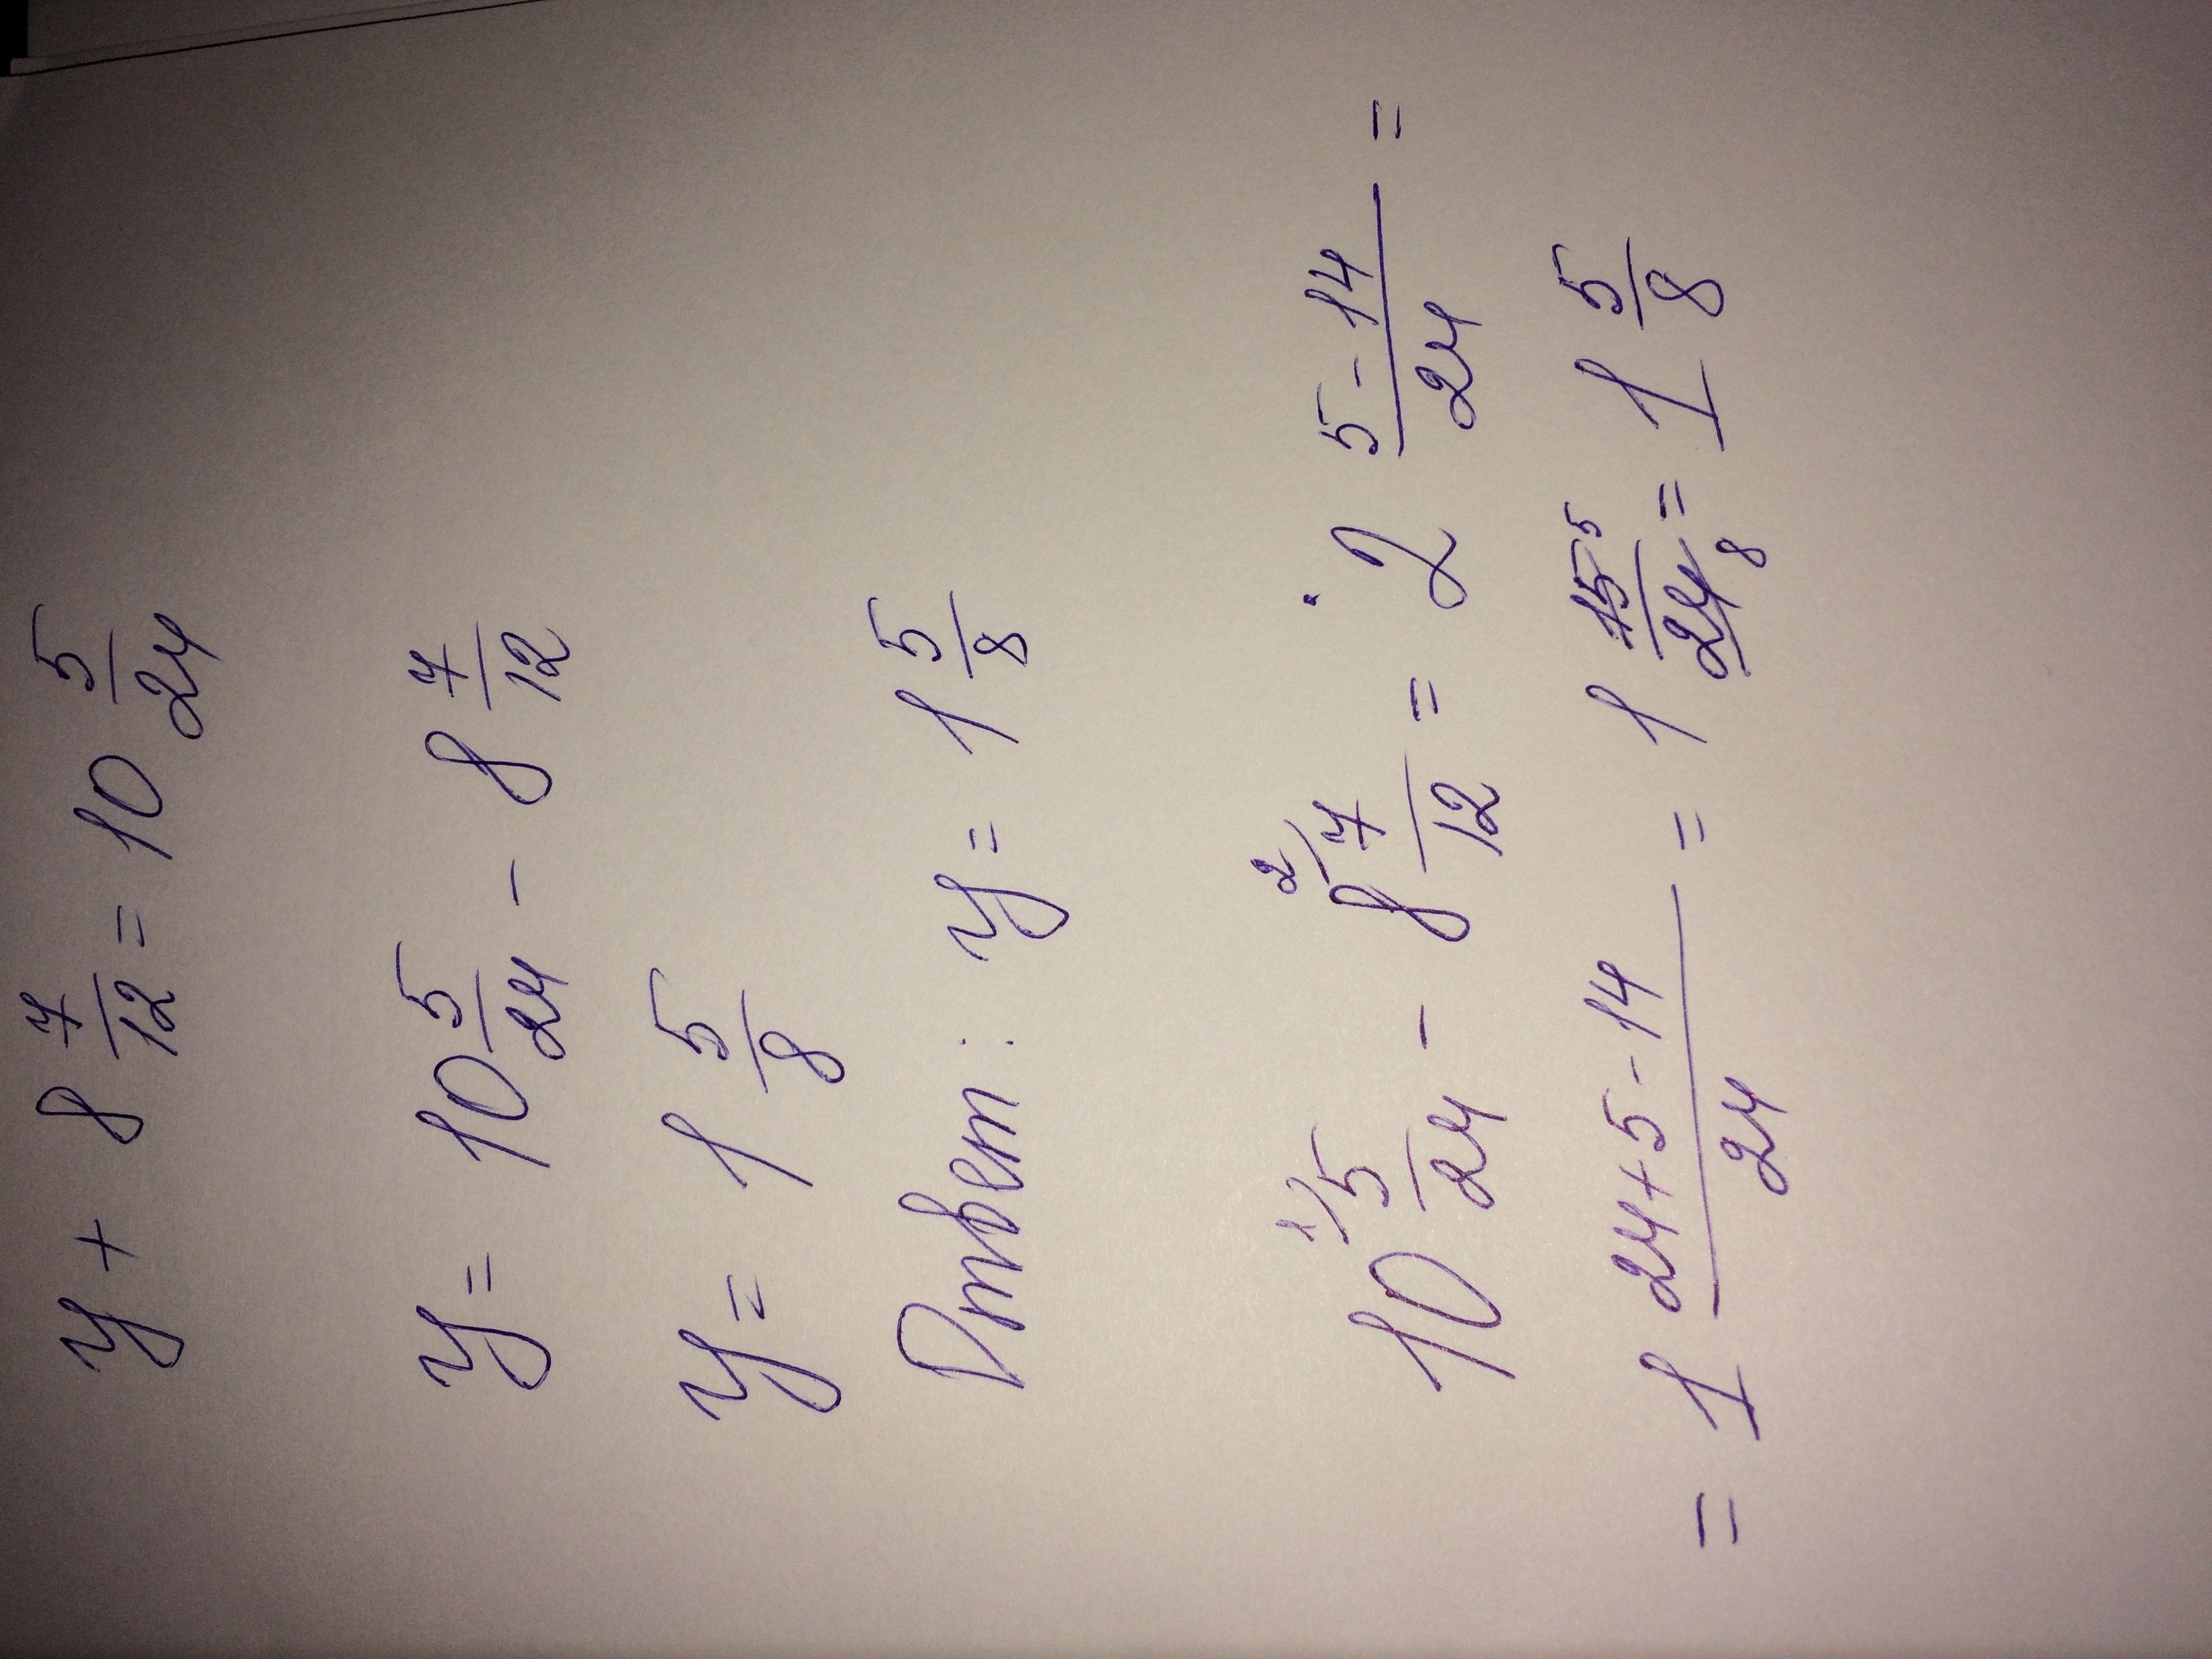 y + 8 7/12 = 10 5/24
y = 10 5/24 - 8 7/12
y = 1 5/8
Ответ: y = 1 5/8
10 1/ 5/24 - 8 2/ 7/12 = 2 5-14/24 =
= 1 24+5-14/24 = 1 15 5/24 8 = 1 5/8